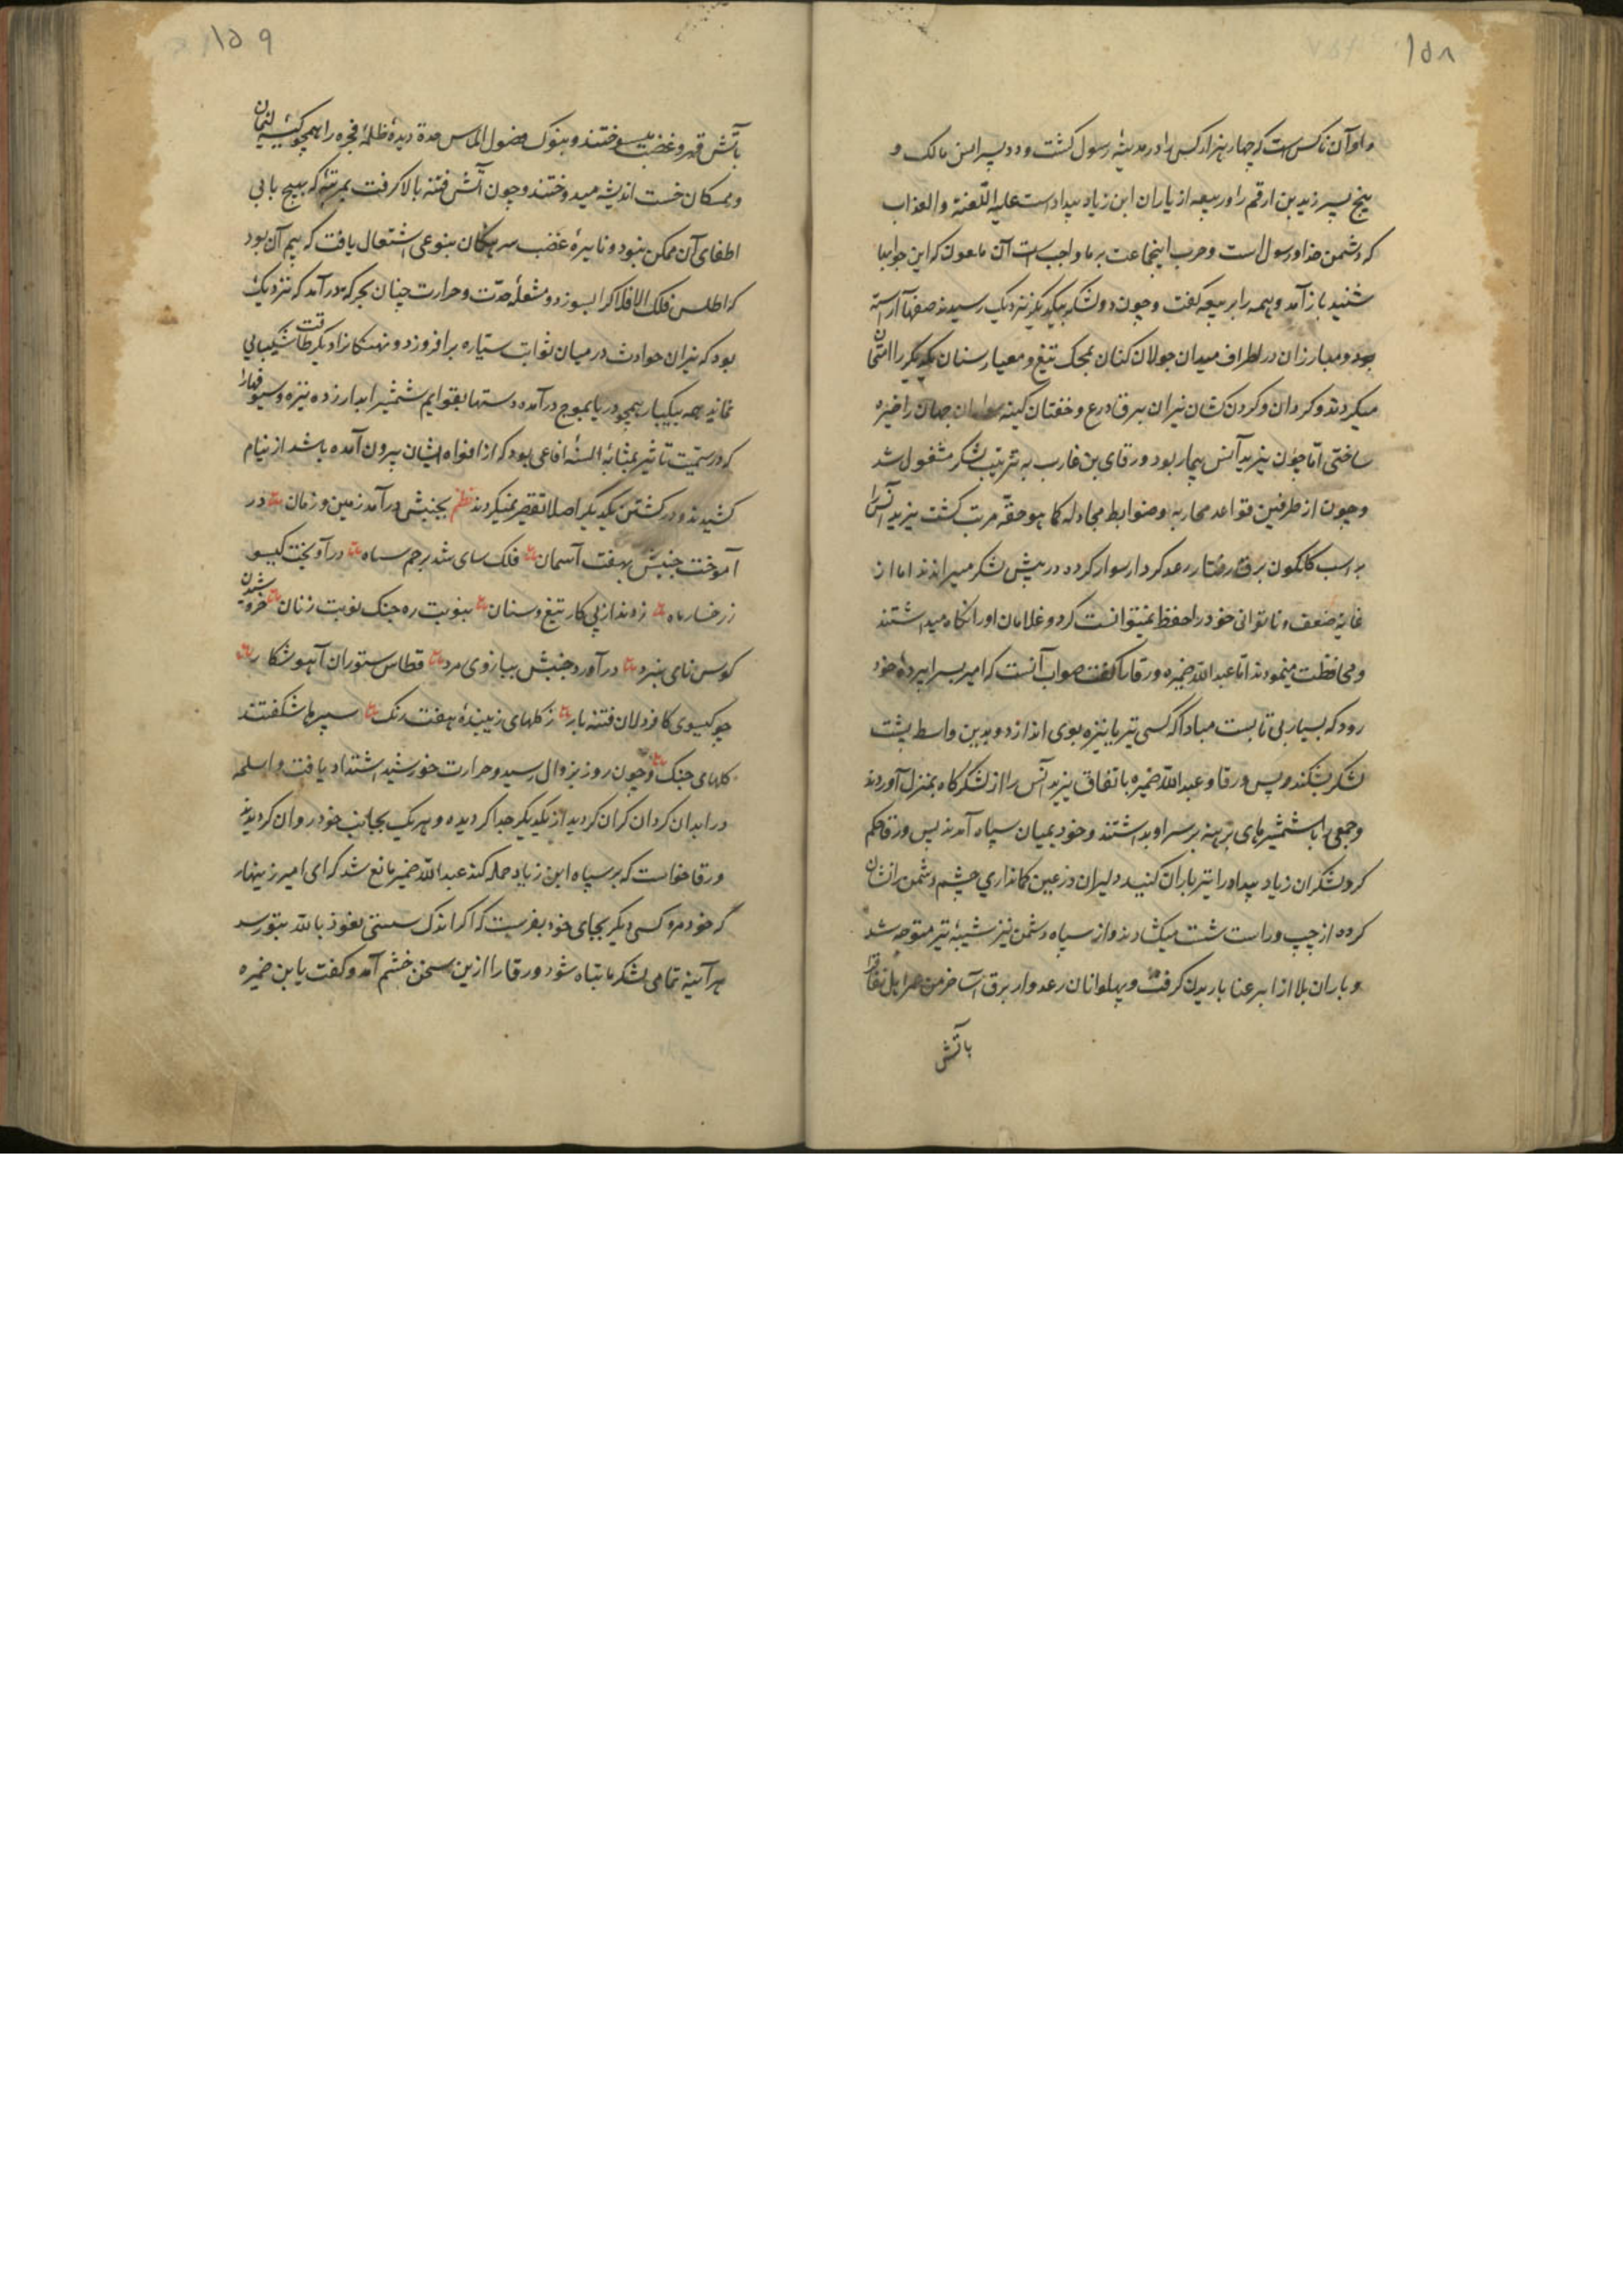 ۱۵۸
و او آن ناکس است که چهار هزار کس را در مدینهٔ رسول کشت و دو پسر انس مالک و
پنج پسر زید بن ارقم را و ربیعه از یاران ابن زیاد بیداد است علیه اللّعنة والعذاب
که دشمن خدا و رسول است و حرب اینجماعت بر ما واجب است آن ملعون که این جوابها
شنید باز آمد و همه را بربیعه گفت و چون دو لشکر بیکدیگر نزدیک رسیدند صفها آراسته
بود و مبارزان در اطراف میدان جولان کنان بمحک تیغ و معیار سنان یکدیگر را امتحان
میکردند و کردان و کردن کشان نیران ببرق درع و خفتان کینه جهان را خیره
ساختی امّا چون یزید آنس بیمار بود ورقای بن غارب به ترتیب لشکر مشغول شد
و چون از طرفین قواعد محاربه و ضوابط مجادله کما هو حقّه مرتب کشت یزید آنس را
بر اسب کلکون برق رفتار رعد کردار سوار کرده در پیش لشکر میراندند اما از
غایة ضعف و ناتوانی خود را حفظ نمیتوانست کرد و غلامان او را نکاه میداشتند
و محافظت مینمودند امّا عبد اللّه ضمیره ورقا را کفت صواب آنست که امیر بسراپردهٔ خود
رود که بسیار بی تابست مبادا که کسی تیر یا نیزه بوی اندازد و بدین واسطه پشت
لشکر بشکند و پس ورقا و عبد اللّه ضمیره باتفاق یزید آنس را از لشکرکاه بمنزل آوردند
و جمعی را با شمشیرهای برهنه بر سر او بداشتند و خود بمیان سپاه آمدند پس ورقا حکم
کرد لشکر ابن زیاد بیداد را تیر باران کنید دلیران در عین کمانداری چشم دشمن را نشان
کرده از چپ و راست شست میکشادند و از سپاه دشمن نیز شیبهٔ تیر متوجه شد
و باران بلا از ابر عنا باریدن کرفت و پهلوانان رعد وار برق آسا خرمن عمر اهل نفاق را
باتش
۱۵۹
باتش قهر و غضب میسوختند و بنوک فصول الماس حدة دیدهٔ ظلمهٔ فجره را همچو کیسهٔ لئیمان
و ممسکان خست اندیشه میدوختند و چون آتش فتنه بالا کرفت بمرتبهٔ که بهیچ بابی
اطفای آن ممکن نبود و نایرهٔ غضب سرهنکان بنوعی اشتعال یافت که بیم آن بود
که اطلس فلک الافلاک را بسوزد و مشعلهٔ حدّت و حرارت چنان بحرکة درآمد که نزدیک
بود که نیران حوادث در میان ثوابت سیّاره برافروزد و نهنکانرا دیکر طاقت شکیبایی
نماند همه بیکبار همچو دریا بموج درآمده دستها بقوایم شمشیر ابدار زده نیزه و سیوفها را
که در سمّیت تأثیر بمثابهٔ السنهٔ افاعی بود که از افواه ایشان بیرون آمده باشد از نیام
کشیدند و در کشتن یکدیگر اصلا تقصیر نمیکردند نظم بجنبش درآمد زمین و زمان در
آموخت جنبش بهفت آسمان فلک سای شد پرچم سیاه درآویخت کیسو
ز رخسار ماه زدند از پی کار تیغ و سنان بنوبت ره جنک نوبت زنان خروشیدن
کوس نای نبرد درآورد جنبش ببازوی مرد قطاس ستوران آهو شکار
چو کیسوی کافر دلان فتنه بار ز کلهای زیبندهٔ هفت رنک سپرها شکفتند
کلهای جنک و چون روز بزوال رسید و حرارت خورشید اشتداد یافت و اسلحه
در ابدان کردان کران کردید از یکدیکر جدا کردیده و هر یک بجانب خود روان کردیدند
ورقا خواست که بر سپاه ابن زیاد حمله کند عبد اللّه ضمیر مانع شد که ای امیر زینهار
که خود مرو کسی دیکر بجای خود بفرست که اکر اندک سستی نعوذ باللّه بتو رسد
هرآینه تمامی لشکر ما تباه شود ورقا را ازین سخن خشم آمد و کفت یا بن ضمیره